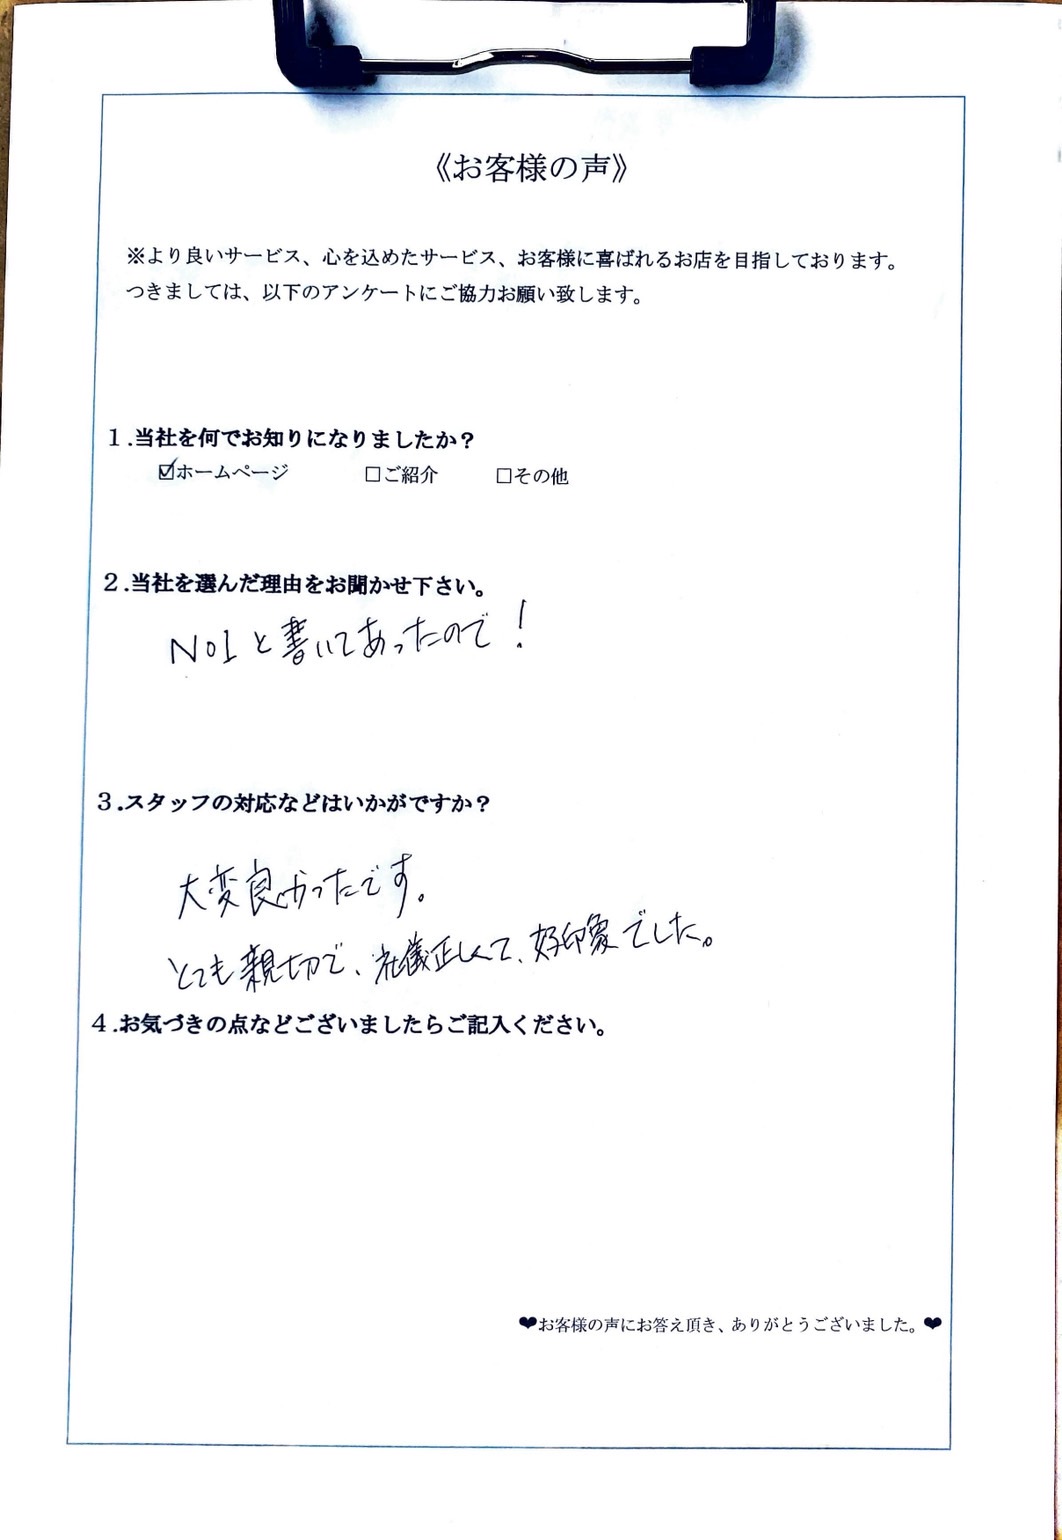 《お客様の声》
※より良いサービス、心を込めたサービス、お客様に喜ばれるお店を目指しております。
つきましては、以下のアンケートにご協力お願い致します。
１.当社を何でお知りになりましたか？
☑ホームページ　□ご紹介　□その他
２.当社を選んだ理由をお聞かせ下さい。
No1と書いてあったので！
３.スタッフの対応などはいかがですか？
大変良かったです。
とても親切で、礼儀正しくて、好印象でした。
４.お気づきの点などございましたらご記入ください。
❤お客様の声にお答え頂き、ありがとうございました。❤